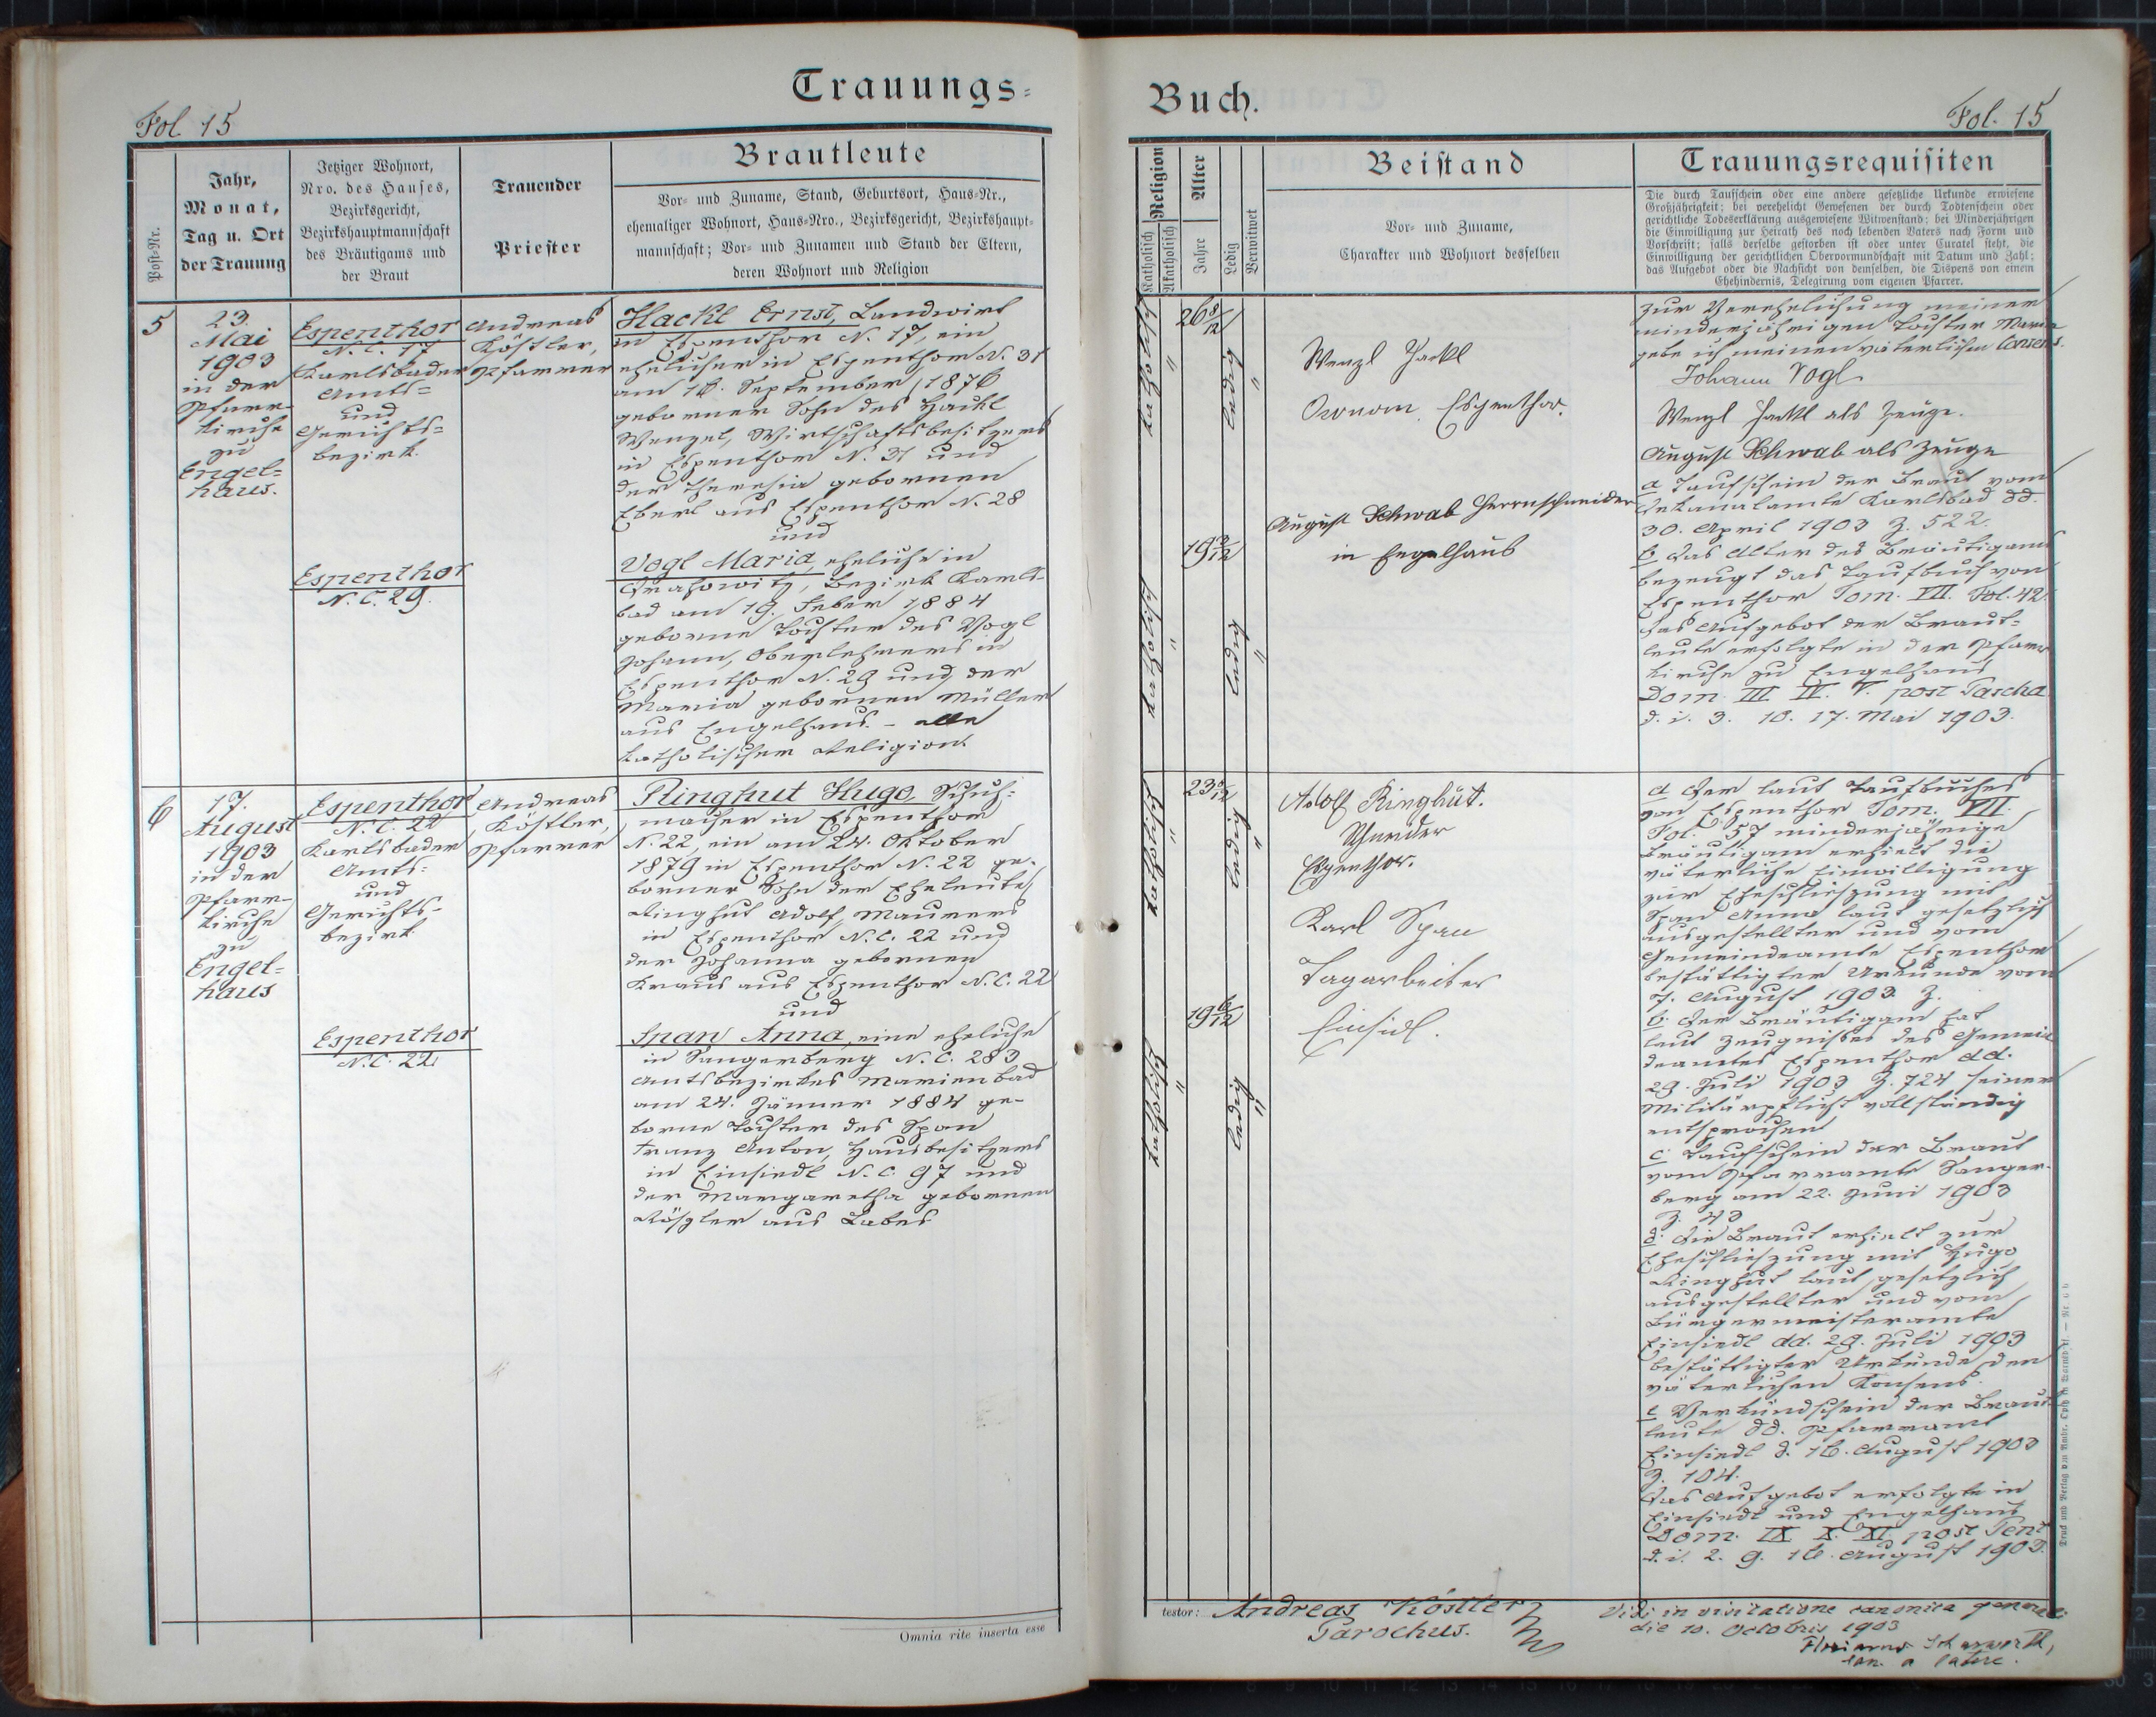 Trauungs=
Buch.
Fol. 15
Fol. 15
Post=Nr.
Jahr,
Monat,
Tag u. Ort
der Trauung
Jetziger Wohnort,
Nro. des Hauses,
Bezirksgericht,
Bezirkshauptmannschaft
des Bräutigams und
der Braut
Trauender
Priester
Brautleute
Vor= und Zuname, Stand, Geburtsort, Haus=Nr.,
ehemaliger Wohnort, Haus=Nro., Bezirksgericht, Bezirkshaupt=
mannschaft; Vor= und Zunamen und Stand der Eltern,
deren Wohnort und Religion
Religion
Katholisch
Akatholisch
Alter
Jahre
Ledig
Verwitwet
Beistand
Vor= und Zuname,
Charakter und Wohnort desselben
Trauungsrequisiten
Die durch Taufschein oder eine andere gesetzliche Urkunde erwiesene
Großjährigkeit; bei verehelicht Gewesenen der durch Todtenschein oder
gerichtliche Todeserklärung ausgewiesene Witwenstand; bei Minderjährigen
die Einwilligung zur Heirath des noch lebenden Vaters nach Form und
Vorschrift; falls derselbe gestorben ist oder unter Curatel steht, die
Einwilligung der gerichtlichen Obervormundschaft mit Datum und Zahl;
das Aufgebot oder die Nachsicht von demselben, die Dispens von einem
Ehehindernis, Delegirung vom eigenen Pfarrer.
5
23.
Mai
1903
in der
Pfarr=
kirche
zu
Engel=
haus.
Espenthor
N. C. 17
Karlsbader
Amts=
und
Gerichts=
bezirk.
Espenthor
N. C. 29.
Andreas
Köstler,
Pfarrer
Hackl Ernst, Landwirt
in Espenthor N. 17, ein
ehelicher in Espenthor N. 31
am 16. September 1876
geborner Sohn des Hackl
Wenzel, Wirtschaftsbesitzers
in Espenthor N. 31 und
der Theresia gebornen
Eberl aus Espenthor N. 28
und
Vogl Maria, eheliche in
Drahowitz, Bezirk Karls=
bad am 19. Feber 1884
geborne Tochter des Vogl
Johann, Oberlehrers in
Espenthor N. 29 und der
Maria gebornen Müller
aus Engelhaus. - alle
katholischer Religion.
katholisch
"
26 8/12
ledig
"
katholisch
"
19 3/12
ledig
"
Wenzl Hackl
Oeconom Espenthor.
August Schwab Herrnschneider
in Engelhaus
zur Verehelichung meiner
minderjährigen Tochter Maria
gebe ich meinen väterlichen Consens.
Johann Vogl
Wenzl Hackl als Zeuge.
August Schwab als Zeuge
a Taufschein der Braut vom
Dekanalamte Karlsbad dd.
30. April 1903 Z. 522.
b Das Alter des Bräutigams
bezeugt das Taufbuch von
Espenthor Tom. VII. Fol. 42.
Das Aufgebot der Braut=
leute erfolgte in der Pfarr
kirche zu Engelhaus
Dom. III IV. V. post Pascha
d. i. 3. 10. 17. Mai 1903.
6
17.
August
1903
in der
Pfarr=
kirche
zu
Engel=
haus
Espenthor
N. C. 22
Karlsbader
Amts=
und
Gerichts=
bezirk
Espenthor
N. C. 22
Andreas
Köstler,
Pfarrer
Ringhut Hugo, Schuh=
macher in Espenthor
N. 22, ein am 24. Oktober
1879 in Espenthor N. 22 ge=
borner Sohn der Eheleute
Ringhut Adolf, Maurers
in Espenthor N. C. 22 und
der Johanna gebornen
Kraus aus Espenthor N. C. 22
und
Span Anna, eine eheliche
in Sangerberg N. C. 283
Amtsbezirkes Marienbad
am 24. Jänner 1884 ge=
borne Tochter des Span
Franz Anton, Hausbesitzers
in Einsiedl N. C. 97 und
der Margaretha gebornen
Rößler aus
katholisch
"
23
ledig
"
katholisch
"
19 6/12
ledig
"
Adolf Ringhut.
Schneider
Espenthor.
Karl Span
Tagarbeiter
Einsidl.
a Der laut Taufbuches
von Espenthor Tom. VII.
Fol. 57 minderjährige
Bräutigam erhielt die
väterliche Einwilligung
zur Eheschließung mit
Span Anna laut gesetzlich
ausgestellter und vom
Gemeindeamte Espenthor
bestättigter Urkunde vom
7. August 1903 Z.
b. Der Bräutigam hat
laut Zeugnisses des Gemein
deamtes Espenthor dd.
29. Juli 1903 Z. 724 seiner
Militärpflicht vollständig
entsprochen
c. Taufschein der Braut
vom Pfarramte Sanger=
berg am 22. Juni 1903
Z. 43
d. Die Braut erhielt zur
Eheschließung mit Hugo
Ringhut laut gesetzlich
ausgestellter und vom
Bürgermeisteramte
Einsiedl dd. 29. Juli 1903
bestättigter Urkunde den
väterlichen Konsens.
e Verkündschein der Braut
leute dd. Pfarramt
Einsiedl d. 16. August 1903
Z. 104.
Das Aufgebot erfolgte in
Einsiedl und Engelhaus
Dom. IX X. XI. post Pent
d. i. 2. 9. 16. August 1903.
Omnia rite inserta esse
testor: Andreas Köstler
Parochus.
Vidi in visitatione canonica generali
die 10. Octobris 1903
can. a latere.